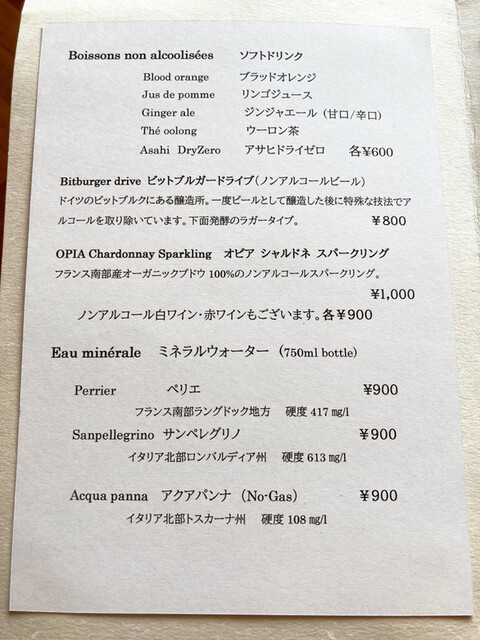 Boissons non alcoolisées ソフトドリンク
Blood orange ブラッドオレンジ
Jus de pomme リンゴジュース
Ginger ale ジンジャエール (甘口/辛口)
Thé oolong ウーロン茶
Asahi DryZero アサヒドライゼロ 各¥600
Bitburger drive ビットブルガードライブ(ノンアルコールビール)
ドイツのビットブルクにある醸造所。一度ビールとして醸造した後に特殊な技法でア
ルコールを取り除いています。下面発酵のラガータイプ。 ¥800
OPIA Chardonnay Sparkling オピア シャルドネ スパークリング
フランス南部産オーガニックブドウ100%のノンアルコールスパークリング。
¥1,000
ノンアルコール白ワイン・赤ワインもございます。各¥900
Eau minérale ミネラルウォーター (750ml bottle)
Perrier ペリエ ¥900
フランス南部ラングドック地方 硬度 417 ㎎/l
Sanpellegrino サンペレグリノ ¥900
イタリア北部ロンバルディア州 硬度 613 ㎎/l
Acqua panna アクアパンナ (No-Gas) ¥900
イタリア北部トスカーナ州 硬度 108 ㎎/l